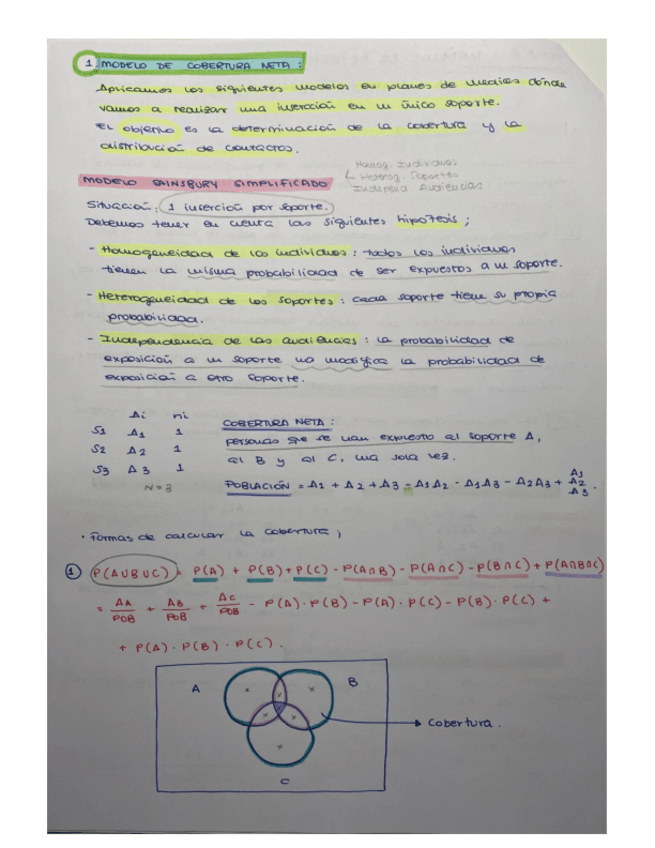 1 MODELO DE COBERTURA NETA:
Aplicamos los siguientes modelos en planes de medios dónde
vamos a realizar una inserción en un único soporte.
El objetivo es la determinación de la cobertura y la
distribución de contactos.
Homog. Individuos
MODELO SAINSBURY SIMPLIFICADO
Heterog. Soportes
Independ Audiencias
Situación: 1 inserción por soporte.
Debemos tener en cuenta las siguientes hipótesis;
- Homogeneidad de los individuos: todos los individuos
tienen la misma probabilidad de ser expuestos a un soporte.
- Heterogeneidad de los soportes: cada soporte tiene su propia
probabilidad.
- Independencia de las audiencias: la probabilidad de
exposición a un soporte no modifica la probabilidad de
exposición a otro soporte.
Ai ni
S1 A1 1
S2 A2 1
S3 A3 1
N=3
COBERTURA NETA:
personas que se han expuesto al soporte A,
al B y al C, una sola vez.
POBLACIÓN = A1 + A2 + A3 - A1A2 - A1A3 - A2A3 + A1 A2 A3.
· Formas de calcular la cobertura;
1 P(A∪B∪C) = P(A) + P(B) + P(C) - P(A∩B) - P(A∩C) - P(B∩C) + P(A∩B∩C)
= AA/POB + AB/POB + AC/POB - P(A)·P(B) - P(A)·P(C) - P(B)·P(C) +
+ P(A)·P(B)·P(C).
A B
Cobertura.
C